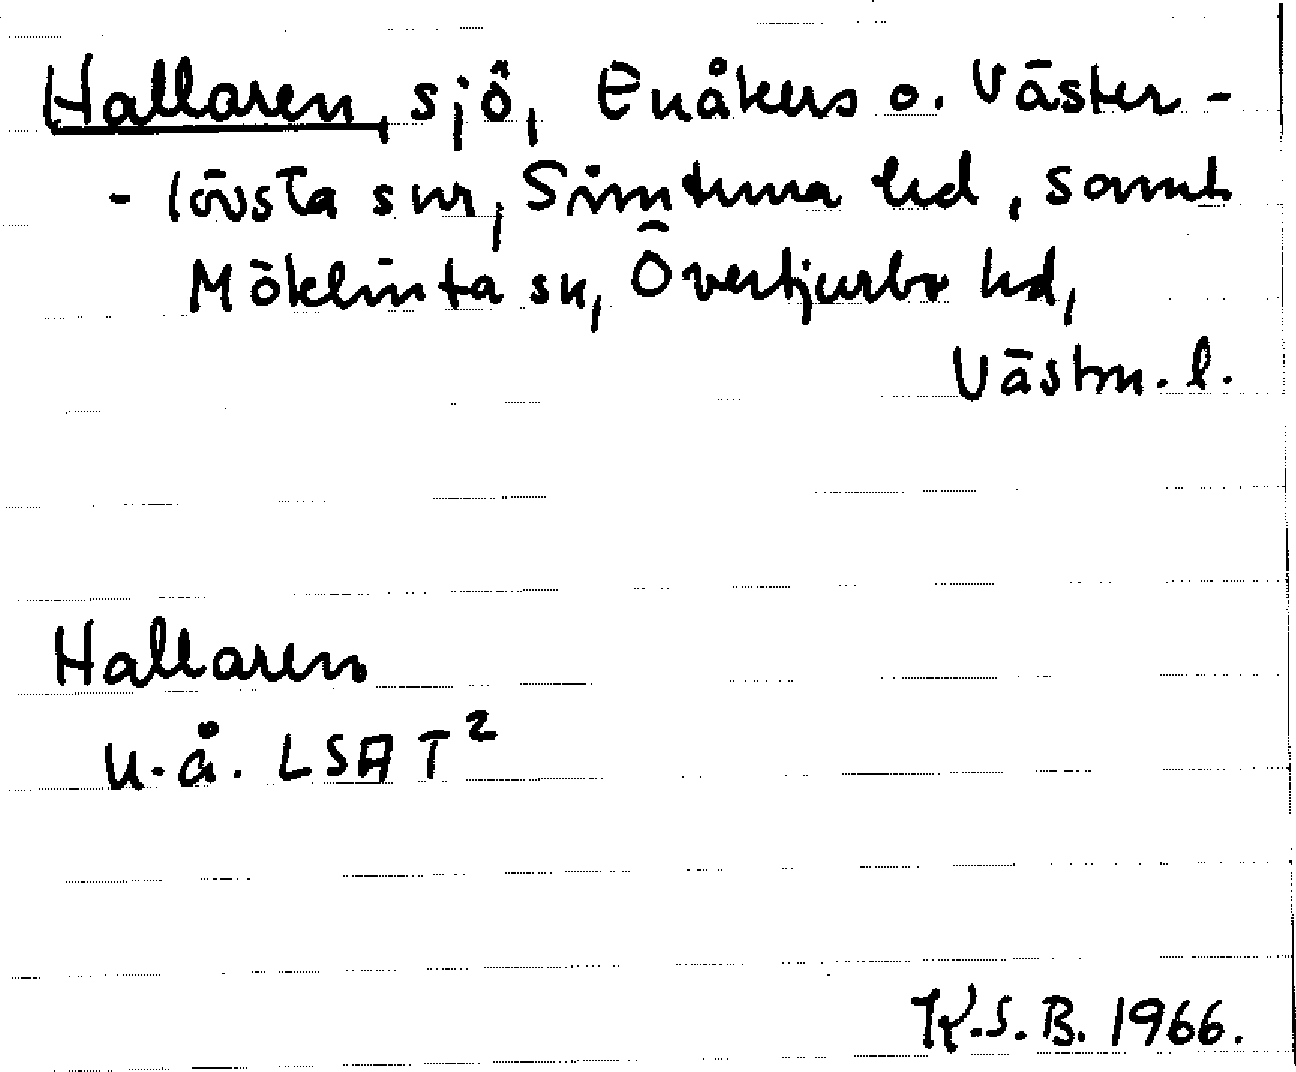 Hallaren, sjö, Enåkers o. Väster-
- lövsta snr, Simtuna hd, samt
Möklinta sn, Övertjurbo hd,
Västm. l.
Hallaren
u.å. LSA T²
K.S.B. 1966.